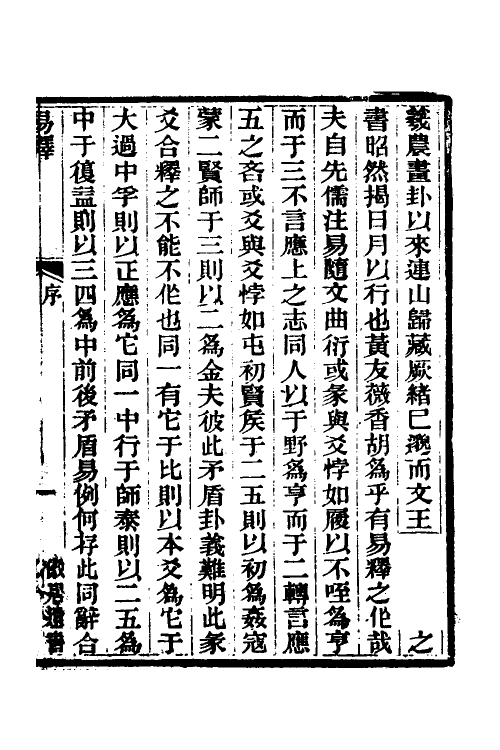 羲農畫卦以來連山歸藏厥緒已邈而文王之
書昭然揭日月以行也黃友薇香胡爲乎有易釋之作哉
夫自先儒注易隨文曲衍或彖與爻悖如履以不咥爲亨
而于三不言應上之志同人以于野爲亨而于二轉言應
五之吝或爻與爻悖如屯初賢矦于二五則以初爲姦寇
蒙二賢師于三則以二爲金夫彼此矛盾卦義難明此彖
爻合釋之不能不作也同一有它于比則以本爻爲它于
大過中孚則以正應爲它同一中行于師泰則以二五爲
中于復益則以三四爲中前後矛盾易例何存此同辭合
易釋
序
一